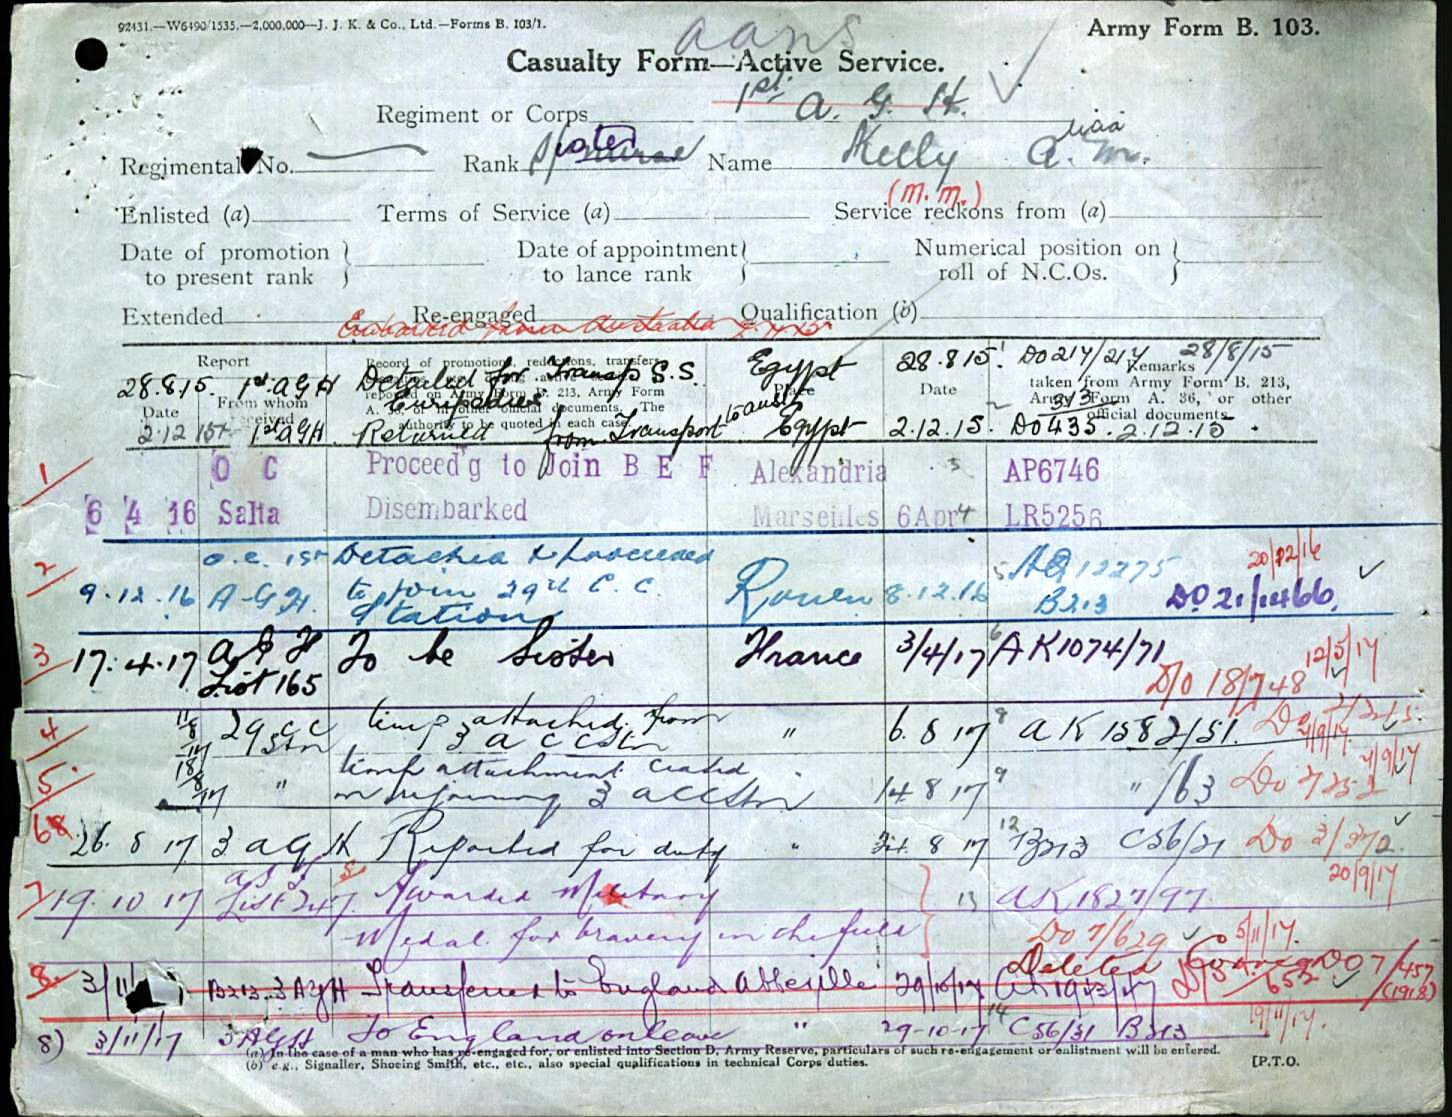 92431.—W6490/1535.—2,000,000—J. J. K. & Co., Ltd.—Forms B. 103/1.
Army Form B. 103.
aans
Casualty Form—Active Service.
Regiment or Corps 1st A. G. H.
Regimental No. Rank Sister Name Kelly A. M.
(M.M.)
Enlisted (a) Terms of Service (a) Service reckons from (a)
Date of promotion to present rank } Date of appointment to lance rank } Numerical position on roll of N.C.Os. }
Extended Re-engaged Qualification (b)
Embarked from Australia
Report
Date
From whom received
Record of promotions, reductions, transfers,
reported on Army Form B. 213, Army Form
A. 36, or in other official documents. The
authority to be quoted in each case.
Place
Date
Remarks
taken from Army Form B. 213,
Army Form A. 36, or other
official documents.
28.8.15. 1st AGH Detailed for Transp S.S. Euripides Egypt 28.8.15 DO 217/217 28/8/15
2.12.15 1st AGH Returned from Transport to Aust Egypt 2.12.15. DO 435. 2.12.15.
1 O C Proceed'g to Join B E F Alexandria AP6746
6 4 16 Salta Disembarked Marseilles 6 Apr LR5256
2 9.12.16 O.C. 1st A.G.H. Detached & proceeded to join 29th C.C. Station Rouen 8.12.16 AQ 12275 B213 20/12/16 DO 21/1466.
3 17.4.17 A G H List 165 To be Sister France 3/4/17 AK1074/71 12/5/17 D/o 18/748
4 11/8/17 29 CC Stn temp attached from 3 A CC Stn " 6. 8 17 AK 1582/51.
5. 18/8/17 " temp attachment ceased on rejoining 3 ACC Stn 14 8 17 " /63 4/9/17
6 26. 8 17 3 AGH Reported for duty " 8 17 B213 C56/21 Do 3/372.
20/9/17
7 19. 10 17 List 247 Awarded Military Medal for bravery in the field 13 AK1827/97
Do 7/629 5/11/17.
8. 3/11 B213 3 AGH Transferred to England Abbeville 29/10/17 Deleted 653 DO 7/457 (1918)
8) 3/11/17 3 AGH To England on leave " 29-10-17 14 C56/31 B213 19/11/17.
(a) In the case of a man who has re-engaged for, or enlisted into Section D, Army Reserve, particulars of such re-engagement or enlistment will be entered.
(b) e.g., Signaller, Shoeing Smith, etc., etc., also special qualifications in technical Corps duties.
[P.T.O.